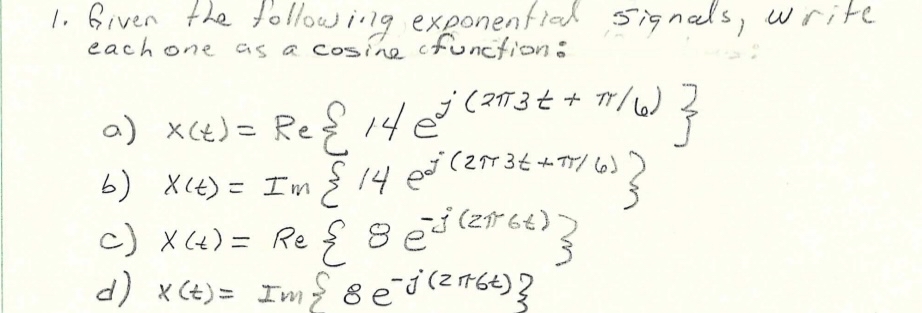 1. Given the following exponential signals, write
each one as a cosine function:
a) x(t) = Re{ 14 e^{j(2π3t + π/6)} }
b) x(t) = Im{ 14 e^{j(2π3t + π/6)} }
c) x(t) = Re{ 8 e^{-j(2π6t)} }
d) x(t) = Im{ 8 e^{-j(2π6t)} }